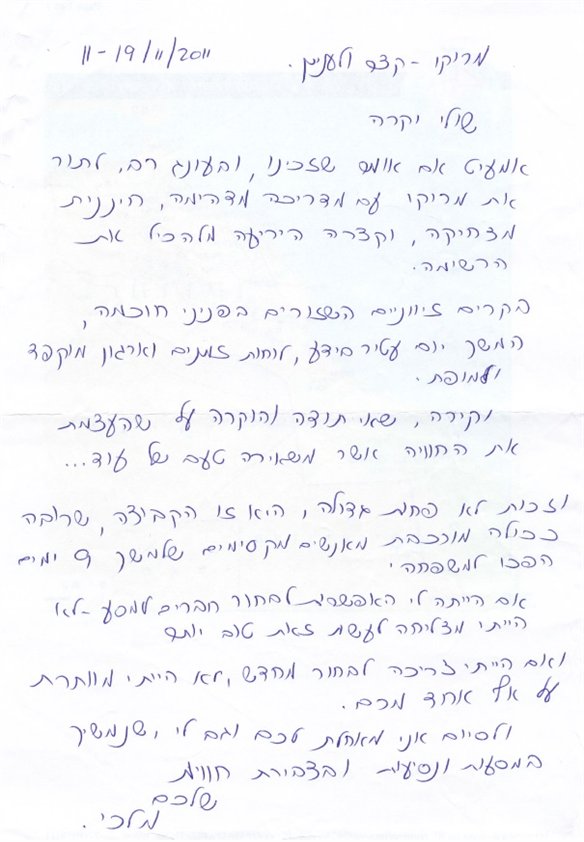 מריקו - קצב ולענין. 11-19/11/2011
שולי יקרה
אמעיט אם אומר שזכינו, ובעונג רב, לתור
את מריקו עם מדריכה מדהימה, חיננית
מצחיקה, וקצרה היריעה מלהכיל את
הרשימה.
בקרים ציוניים השזורים בפניני חוכמה,
המשך יום עטיר בידע, לוחות זמנים וארגון מוקפד
ולמופת.
יקירה, שאי תודה והוקרה על שהעצמת
את החוויה אשר משאירה טעם של עוד...
וזכות לא פחות גדולה, היא זו הקבוצה, שרובה
ככולה מורכבת מאנשים מקסימים שלמשך 9 ימים
הפכו למשפחתי
אם הייתה לי האפשרות לבחור חברים למסע - לא
הייתי מצליחה לעשות זאת טוב יותר
ואם הייתי צריכה לבחור מחדש, לא הייתי מוותרת
על אף אחד מכם.
ולסיום אני מאחלת לכם וגם לי, שנמשיך
במסעות ונסיעות ובצבירת חוויות
שלכם
מלכי.